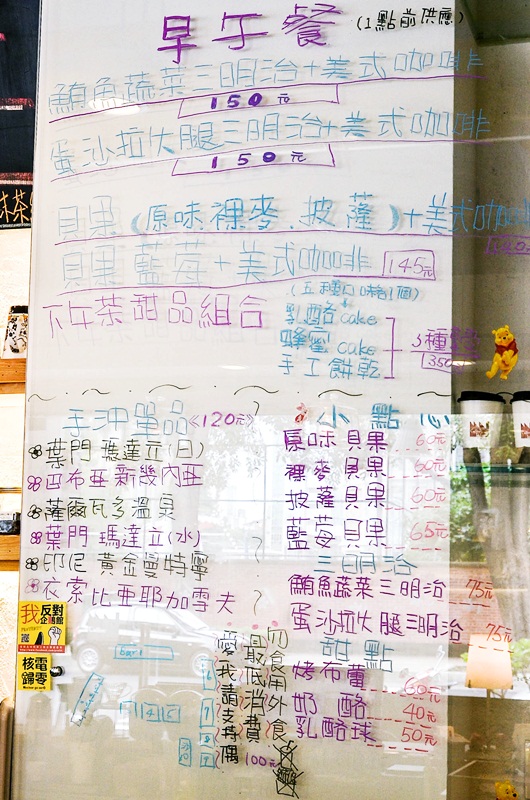 早午餐 (1點前供應)
鮪魚蔬菜三明治+美式咖啡
150元
蛋沙拉火腿三明治+美式咖啡
150元
貝果(原味.裸麥.披薩)+美式咖啡
貝果藍莓+美式咖啡 145元
下午茶甜品組合
(五種口味各1個)
乳酪cake
蜂蜜cake
手工餅乾
3種
350
手沖單品《120元》
葉門瑪達立(日)
四布亞新幾內亞
薩爾瓦多溫泉
葉門瑪達立(水)
印尼黃金曼特寧
衣索比亞耶加雪夫
小點心
原味貝果 60元
裸麥貝果 60元
披薩貝果 60元
藍莓貝果 65元
三明治
鮪魚蔬菜三明治 75元
蛋沙拉火腿三明治 75元
甜點
烤布蕾 60元
奶酪 40元
乳酪球 50元
愛我請支持偶
最低消費100元
禁帶外食
bar1
我反對
核電歸零